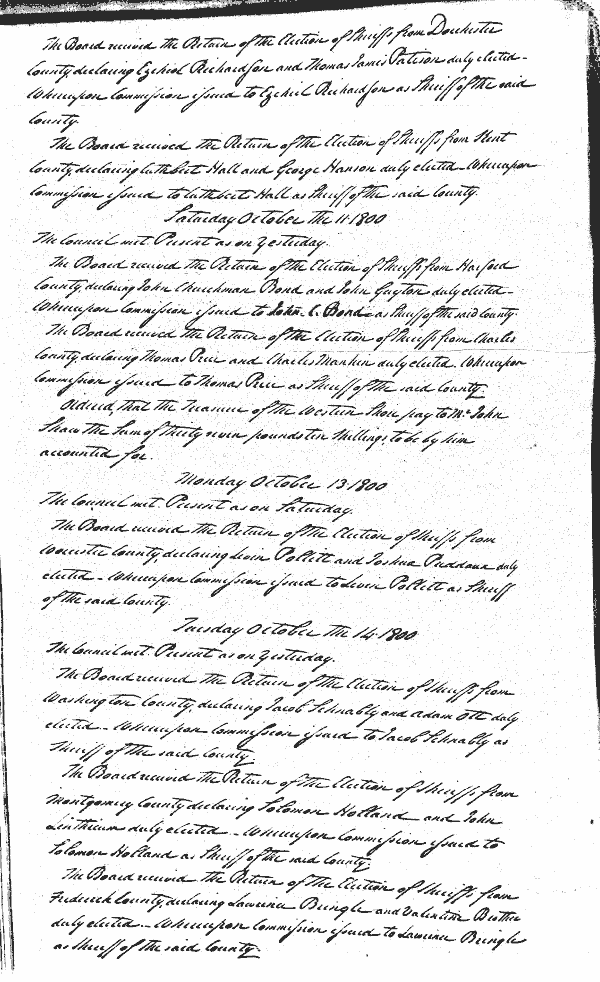 The Board received the Return of the Election of Sheriffs from Dorchester
County, declaring Ezekiel Richardson and Thomas James Pattison duly elected -
Whereupon Commission issued to Ezekiel Richardson as Sheriff of the said
County.
The Board received the Return of the Election of Sheriffs from Kent
County, declaring Cuthbert Hall and George Hanson duly elected - Whereupon
Commission issued to Cuthbert Hall as Sheriff of the said County.
Saturday October the 11. 1800
The Council met. Present as on Yesterday.
The Board received the Return of the Election of Sheriffs from Harford
County, declaring John Churchman Bond and John Guyton duly elected -
Whereupon Commission issued to John. C. Bond as Sheriff of the said County.
The Board received the Return of the Election of Sheriffs from Charles
County, declaring Thomas Price and Charles Mankin duly elected. Whereupon
Commission issued to Thomas Price as Sheriff of the said County.
Ordered, that the Treasurer of the Western Shore pay to Mr. John
Shaw the Sum of thirty seven pounds ten Shillings, to be by him
accounted for.
Monday October 13. 1800
The Council met. Present as on Saturday.
The Board received the Return of the Election of Sheriffs from
Worcester County, declaring Levin Pollitt and Joshua Prideaux duly
elected - Whereupon Commission issued to Levin Pollitt as Sheriff
of the said County.
Tuesday October the 14. 1800
The Council met. Present as on Yesterday.
The Board received the Return of the Election of Sheriffs from
Washington County, declaring Jacob Schnably and Adam Ott duly
elected - Whereupon Commission issued to Jacob Schnably as
Sheriff of the said County
The Board received the Return of the Election of Sheriffs, from
Montgomery County declaring Solomon Holland and John
Linthicum duly elected - Whereupon Commission issued to
Solomon Holland as Sheriff of the said County.
The Board received the Return of the Election of Sheriffs, from
Frederick County, declaring Lawrence Brengle and Valentine Brother
duly elected - Whereupon Commission issued to Lawrence Brengle
as Sheriff of the said County.